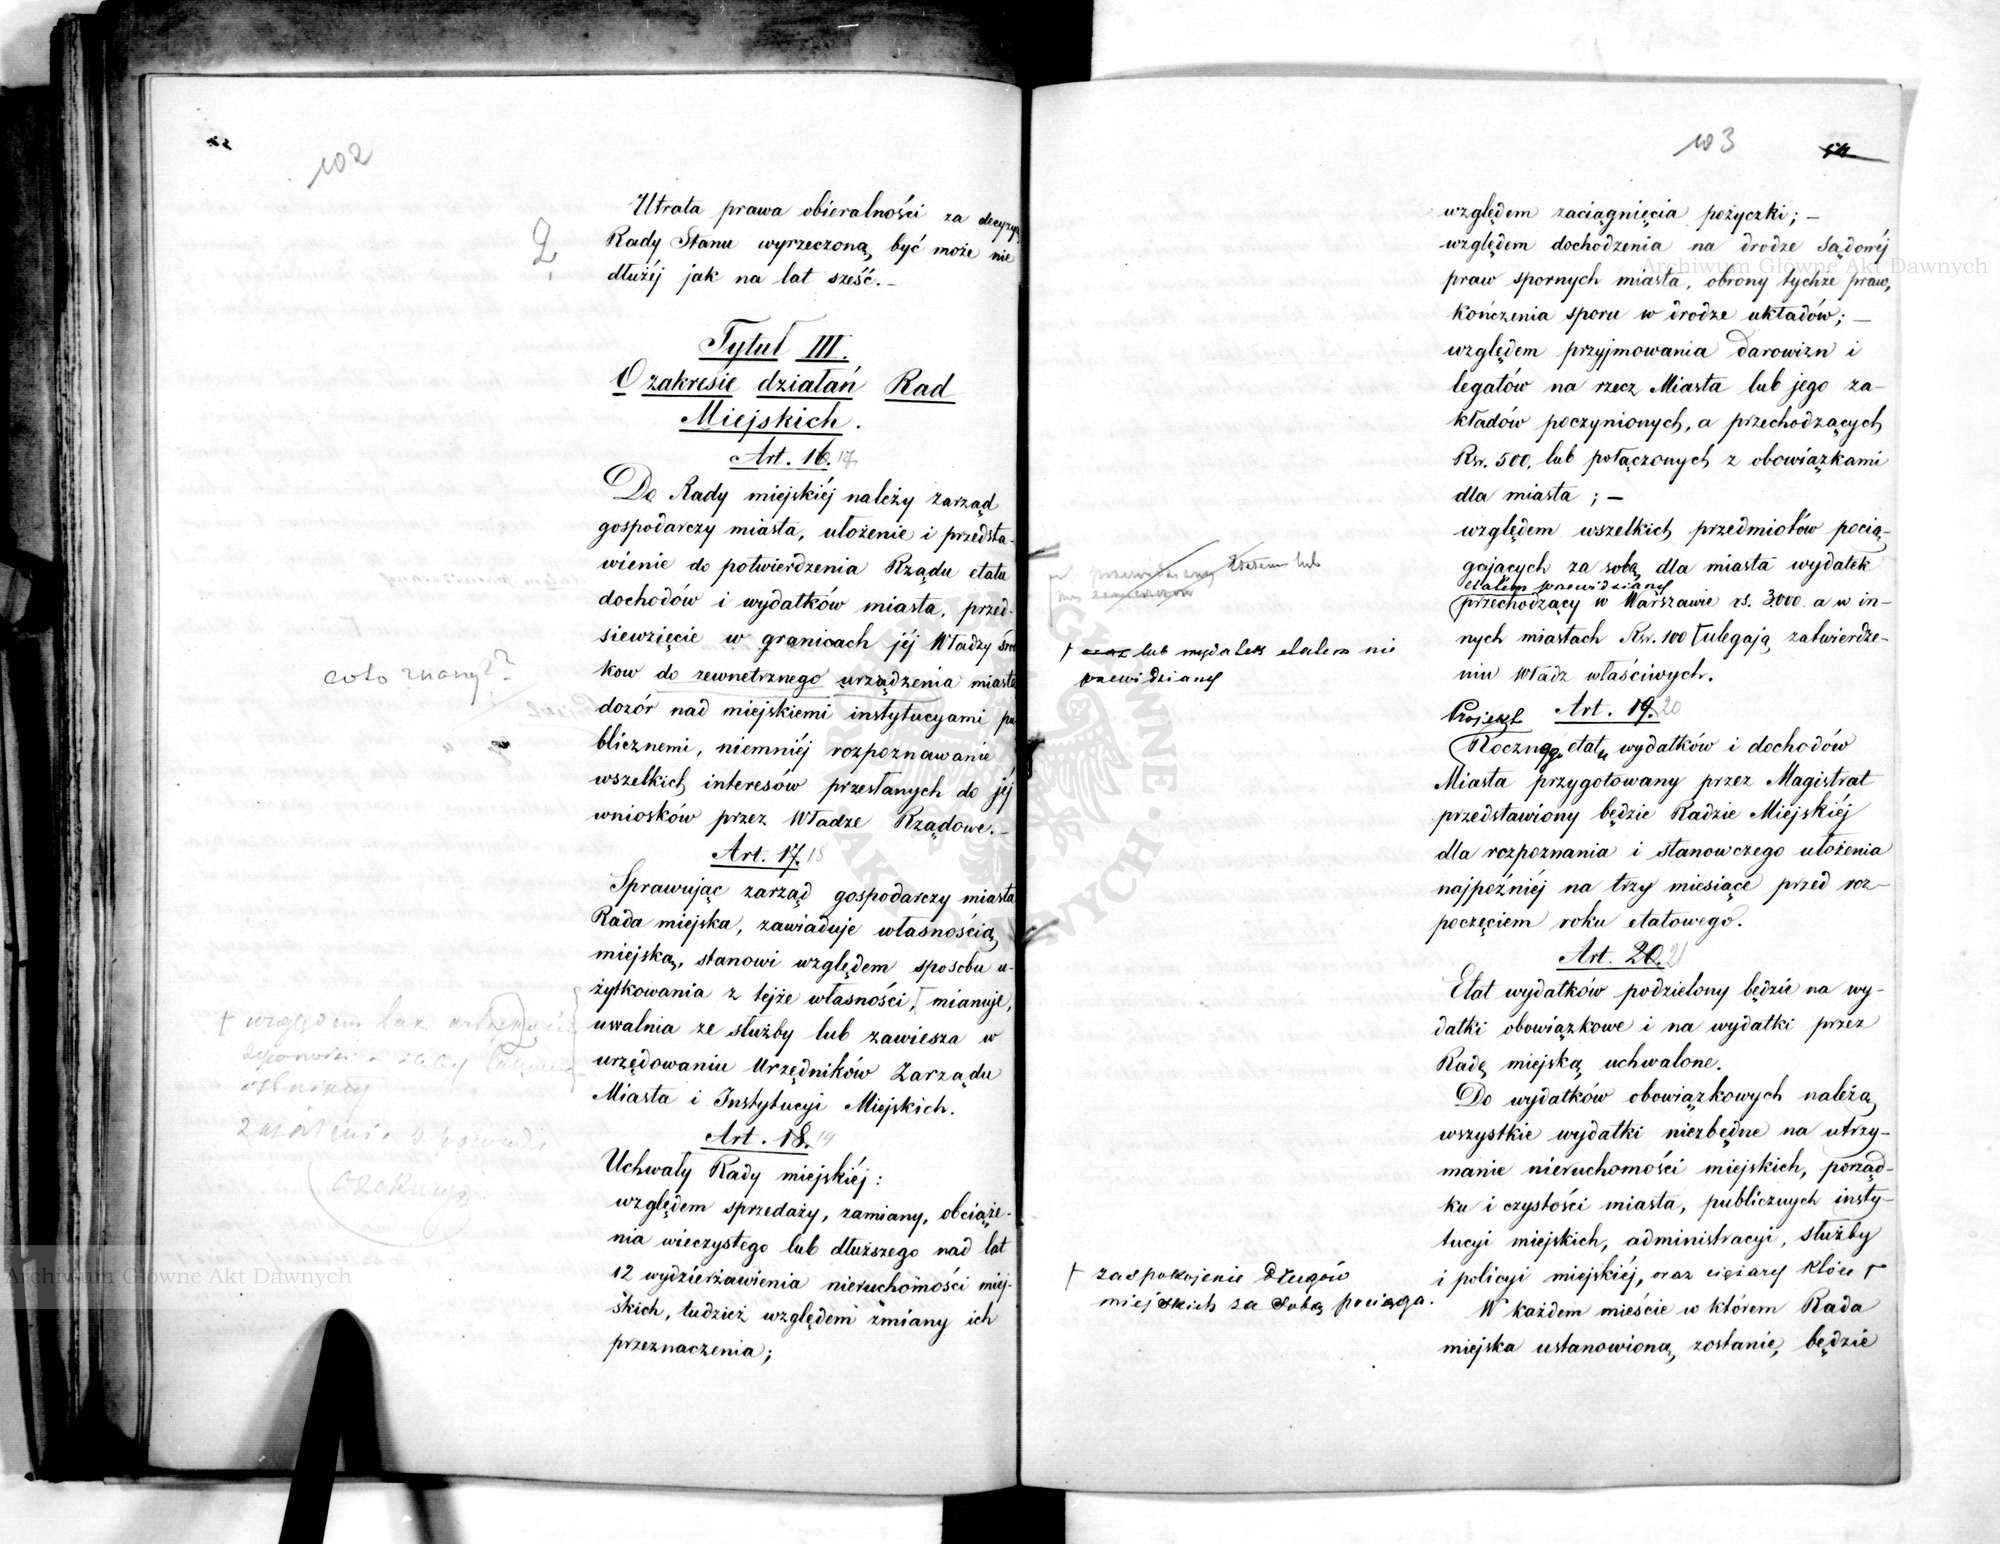 102
Utrata prawa obieralności za decyzyą
Rady Stanu wyrzeczoną, być może nie
dłużéj jak na lat sześć. —
Tytuł III.
O zakresie działań Rad
Miejskich.
Art. 16. 17
Do Rady miejskiéj należy zarząd
gospodarczy miasta, ułożenie i przedsta-
wienie do potwierdzenia Rządu etatu
dochodów i wydatków miasta, przed-
siewzięcie w granicach jéj Władzy środ
kow do zewnetrznego urządzenia miasta
co to znaczy??
dozór nad miejskiemi instytucyami pu
blicznemi, niemniéj rozpoznawanie
wszelkich interesów przesłanych do jéj
wniosków przez Władze Rządowe. —
Art. 17. 18
Sprawując zarząd gospodarczy miasta
Rada miejska, zawiaduje własnością
miejską, stanowi względem sposobu u-
żytkowania z tejże własności, mianuje,
uwalnia ze służby lub zawiesza w
urzędowaniu Urzędników Zarządu
Miasta i Instytucyi Miejskich.
† względem
Art. 18. 19
Uchwały Rady miejskiéj:
względem sprzedaży, zamiany, obciąże-
nia wieczystego lub dłuższego nad lat
12 wydzierżawienia nieruchomości miej-
skich, tudzież względem zmiany ich
przeznaczenia;
103
względem zaciągnięcia pożyczki; —
względem dochodzenia na drodze sądowéj
praw spornych miasta, obrony tychże praw,
kończenia sporu w drodze układów; —
względem przyjmowania darowizn i
legatów na rzecz Miasta lub jego za-
kładów poczynionych, a przechodzących
Rsr. 500, lub połączonych z obowiązkami
dla miasta; —
względem wszelkich przedmiotów pocią-
gających za sobą dla miasta wydatek
etatem przewidziany
przechodzący w Warszawie rs. 3000 a w in-
nych miastach Rsr. 100 † ulegają zatwierdze-
niu Władz właściwych.
† oraz lub wydatek etatem nie
przewidziany
Art. 19. 20
Projekt
Rocznego etatu wydatków i dochodów
Miasta przygotowany przez Magistrat
przedstawiony będzie Radzie Miejskiéj
dla rozpoznania i stanowczego ułożenia
najpoźniéj na trzy miesiące przed roz-
poczęciem roku etatowego.
Art. 20. 21
Etat wydatków podzielony będzie na wy-
datki obowiązkowe i na wydatki przez
Radę miejską uchwalone.
Do wydatków obowiązkowych należą
wszystkie wydatki niezbędne na utrzy-
manie nieruchomości miejskich, porząd-
ku i czystości miasta, publicznych insty-
tucyi miejskich, administracyi, służby
i policyi miejskiéj, oraz ciężary które †
† zaspokojenie długów
miejskich za sobą pociąga.
W każdem mieście w którem Rada
miejska ustanowioną zostanie, będzie
Archiwum Główne Akt Dawnych
Archiwum Główne Akt Dawnych